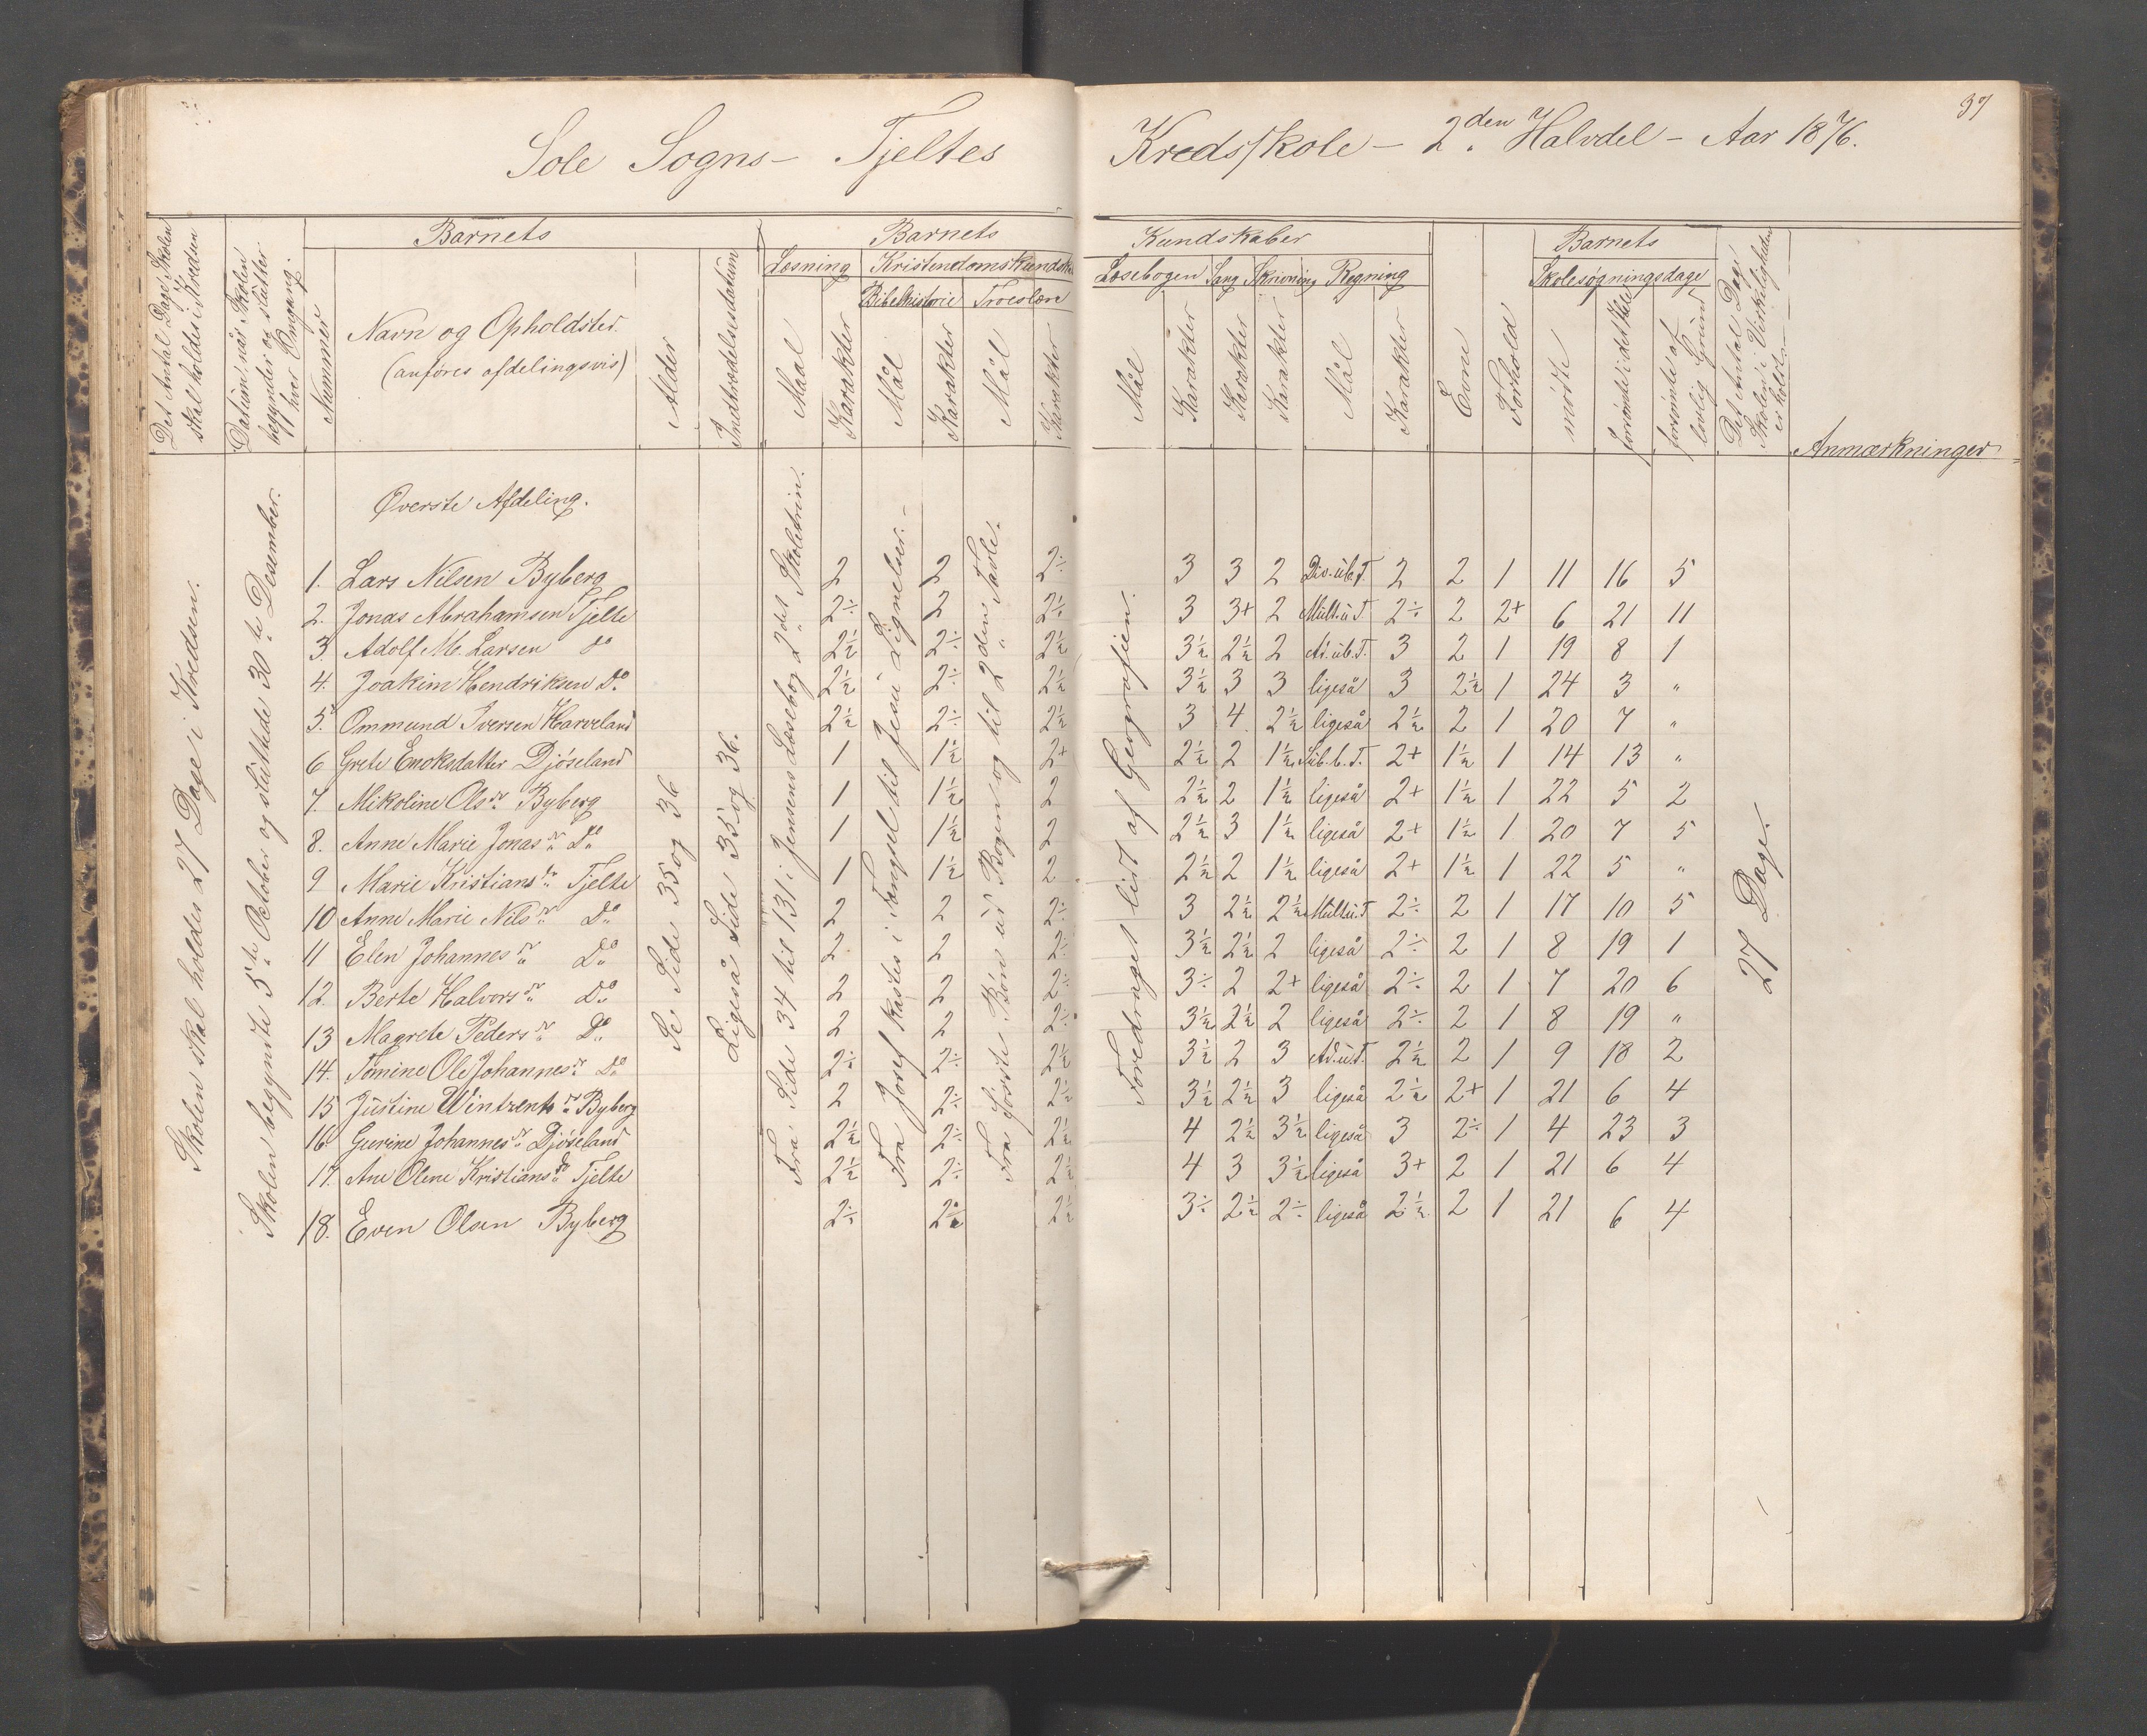 37
Sole Sogns – Tjeltes Kredsskole – 2den Halvdel – Aar 1876.
Det Antal Dage Skolen skal holdes i Kredsen
Datum, når Skolen begynder og slutter hver Omgang.
Nummer
Barnets
Navn og Opholdsted.
(anføres afdelingsvis)
Alder
Indtrædelsesdatum
Barnets
Læsning
Maal
Karakter
Kristendomskundsk
Bibelhistorie
Mål
Karakter
Troeslære
Mål
Karakter
Kundskaber
Læsebogen
Mål
Karakter
Sang
Karakter
Skrivning
Karakter
Regning
Mål
Karakter
Evne
Forhold
Barnets
Skolesøgningsdage
mødte
forsømte i det Hele
forsømte af lovlig Grund
Det Antal Dage Skolen i Virkeligheden er holdt
Anmærkninger
Skolen skal holdes 27 Dage i Kredsen.
Skolen begynte 5te October og sluttede 30te Desember.
Se Side 35 og 36
Ligeså Side 35 og 36.
Fra Side 34 til 131 i Jensens Læsebog 2det Skoletrin.
Fra Josef kastes i Fængsel til Jesu Lignelser. –
Fra første Bøn ud Bogen og til 2den Tavle.
Foredraget lidt af Geografien.
27 Dage.
Øverste Afdeling.
1. Lars Nilsen Byberg 2 2 2÷ 3 3 2 Div. ub. T. 2 2 1 11 16 5
2. Jonas Abrahamsen Tjelte 2÷ 2 2½ 3 3+ 2 Mult. u T 2÷ 2 2+ 6 21 11
3. Adolf M. Larsen do 2½ 2÷ 2½ 3½ 2½ 2 Ad. ub. T. 3 2 1 19 8 1
4. Joakim Hendriksen Do. 2½ 2÷ 2½ 3½ 3 3 ligeså 3 2½ 1 24 3 "
5. Ommund Iversen Harveland 2½ 2÷ 2½ 3 4 2½ ligeså 2½ 2 1 20 7 "
6 Grete Enoksdatter Djøseland 1 1½ 2+ 2½ 2 1½ Sub. b. T. 2+ 1½ 1 14 13 "
7. Mikoline Olsdr Byberg 1 1½ 2 2½ 2 1½ ligeså 2+ 1½ 1 22 5 2
8. Anne Marie Jonasdr Do 1 1½ 2 2½ 3 1½ ligeså 2+ 1½ 1 20 7 5
9 Marie Kristiansdr Tjelte 1 1½ 2 2½ 2 1½ ligeså 2+ 1½ 1 22 5 "
10 Anne Marie Nilsdr Do 2 2 2÷ 3 2½ 2½ Mult u. T 2÷ 2 1 17 10 5
11 Elen Johannesdr Do 2 2 2÷ 3½ 2½ 2 ligeså 2÷ 2 1 8 19 1
12. Berte Halvorsdr Do 2 2 2÷ 3÷ 2 2+ ligeså 2÷ 2 1 7 20 6
13 Magrete Pedersdr Do 2 2 2÷ 3½ 2½ 2 ligeså 2÷ 2 1 8 19 "
14. Tomine Ole Johannesdr Do 2÷ 2÷ 2½ 3½ 2 3 Ad. u T. 2½ 2 1 9 18 2
15 Justine Wintzentsdr Byberg 2 2÷ 2½ 3½ 2½ 3 ligeså 2½ 2+ 1 21 6 4
16. Gurine Johannesdr Djøseland 2½ 2÷ 2½ 4 2½ 3½ ligeså 3 2÷ 1 4 23 3
17. Ane Olene Kristiansdr Tjelte 2½ 2÷ 2½ 4 3 3½ ligeså 3+ 2 1 21 6 4
18. Even Olsen Byberg 2÷ 2½ 2½ 3÷ 2½ 2÷ ligeså 2½ 2 1 21 6 4